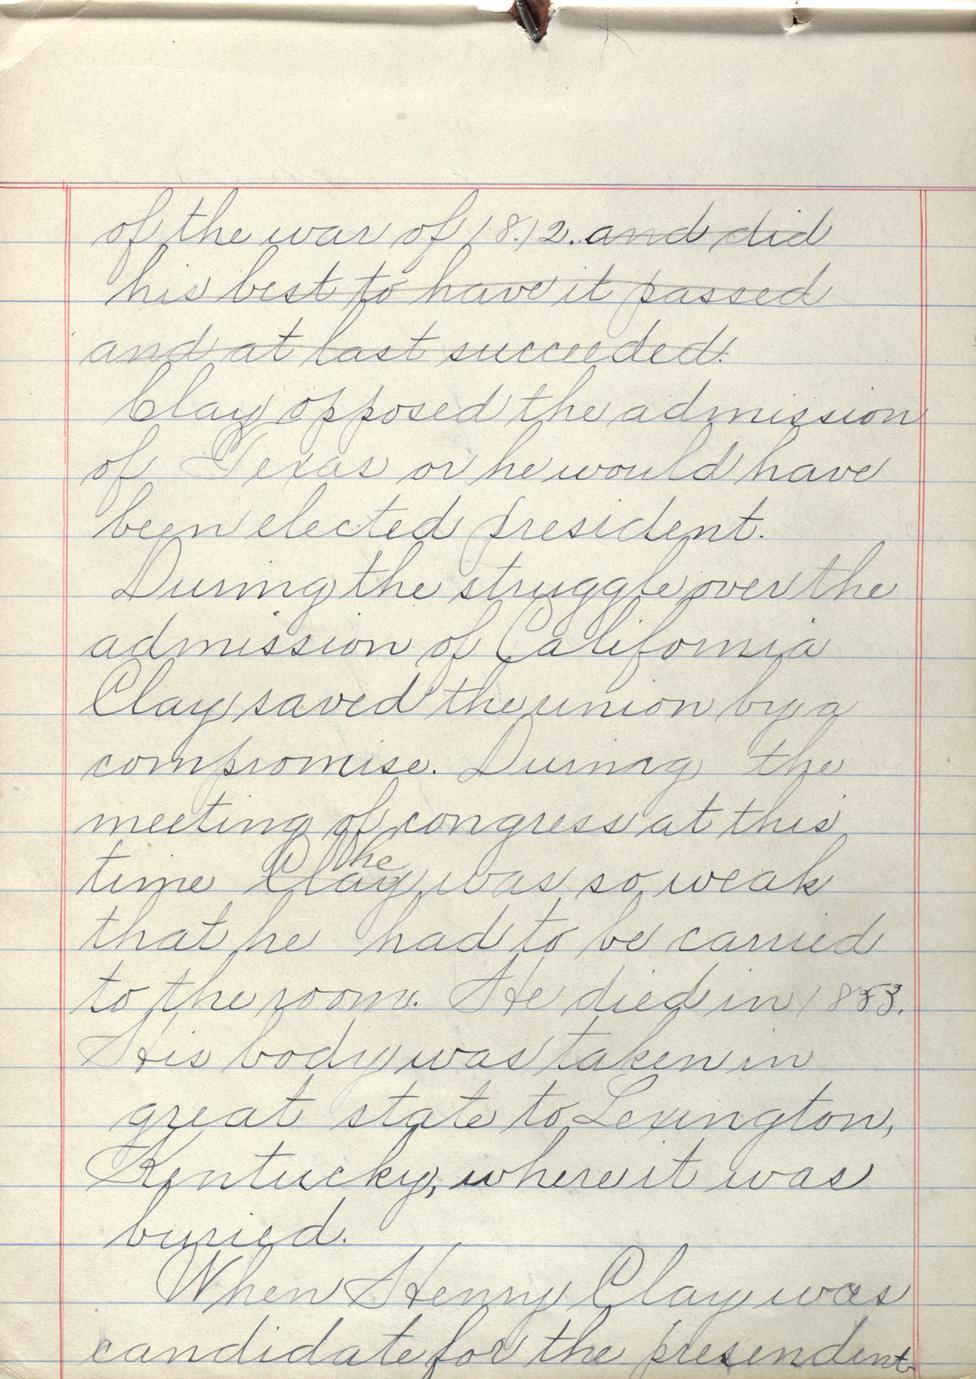 of the war of 1812. and did
his best to have it passed
and at last succeeded.
Clay opposed the admission
of Texas or he would have
been elected president.
During the struggle over the
admission of California
Clay saved the union by a
compromise. During the
meeting of congress at this
the
time Clay was so weak
that he had to be carried
to the room. He died in 1853.
His body was taken in
great state to Lexington,
Kentucky, where it was
buried.
When Henry Clay was
candidate for the presendent